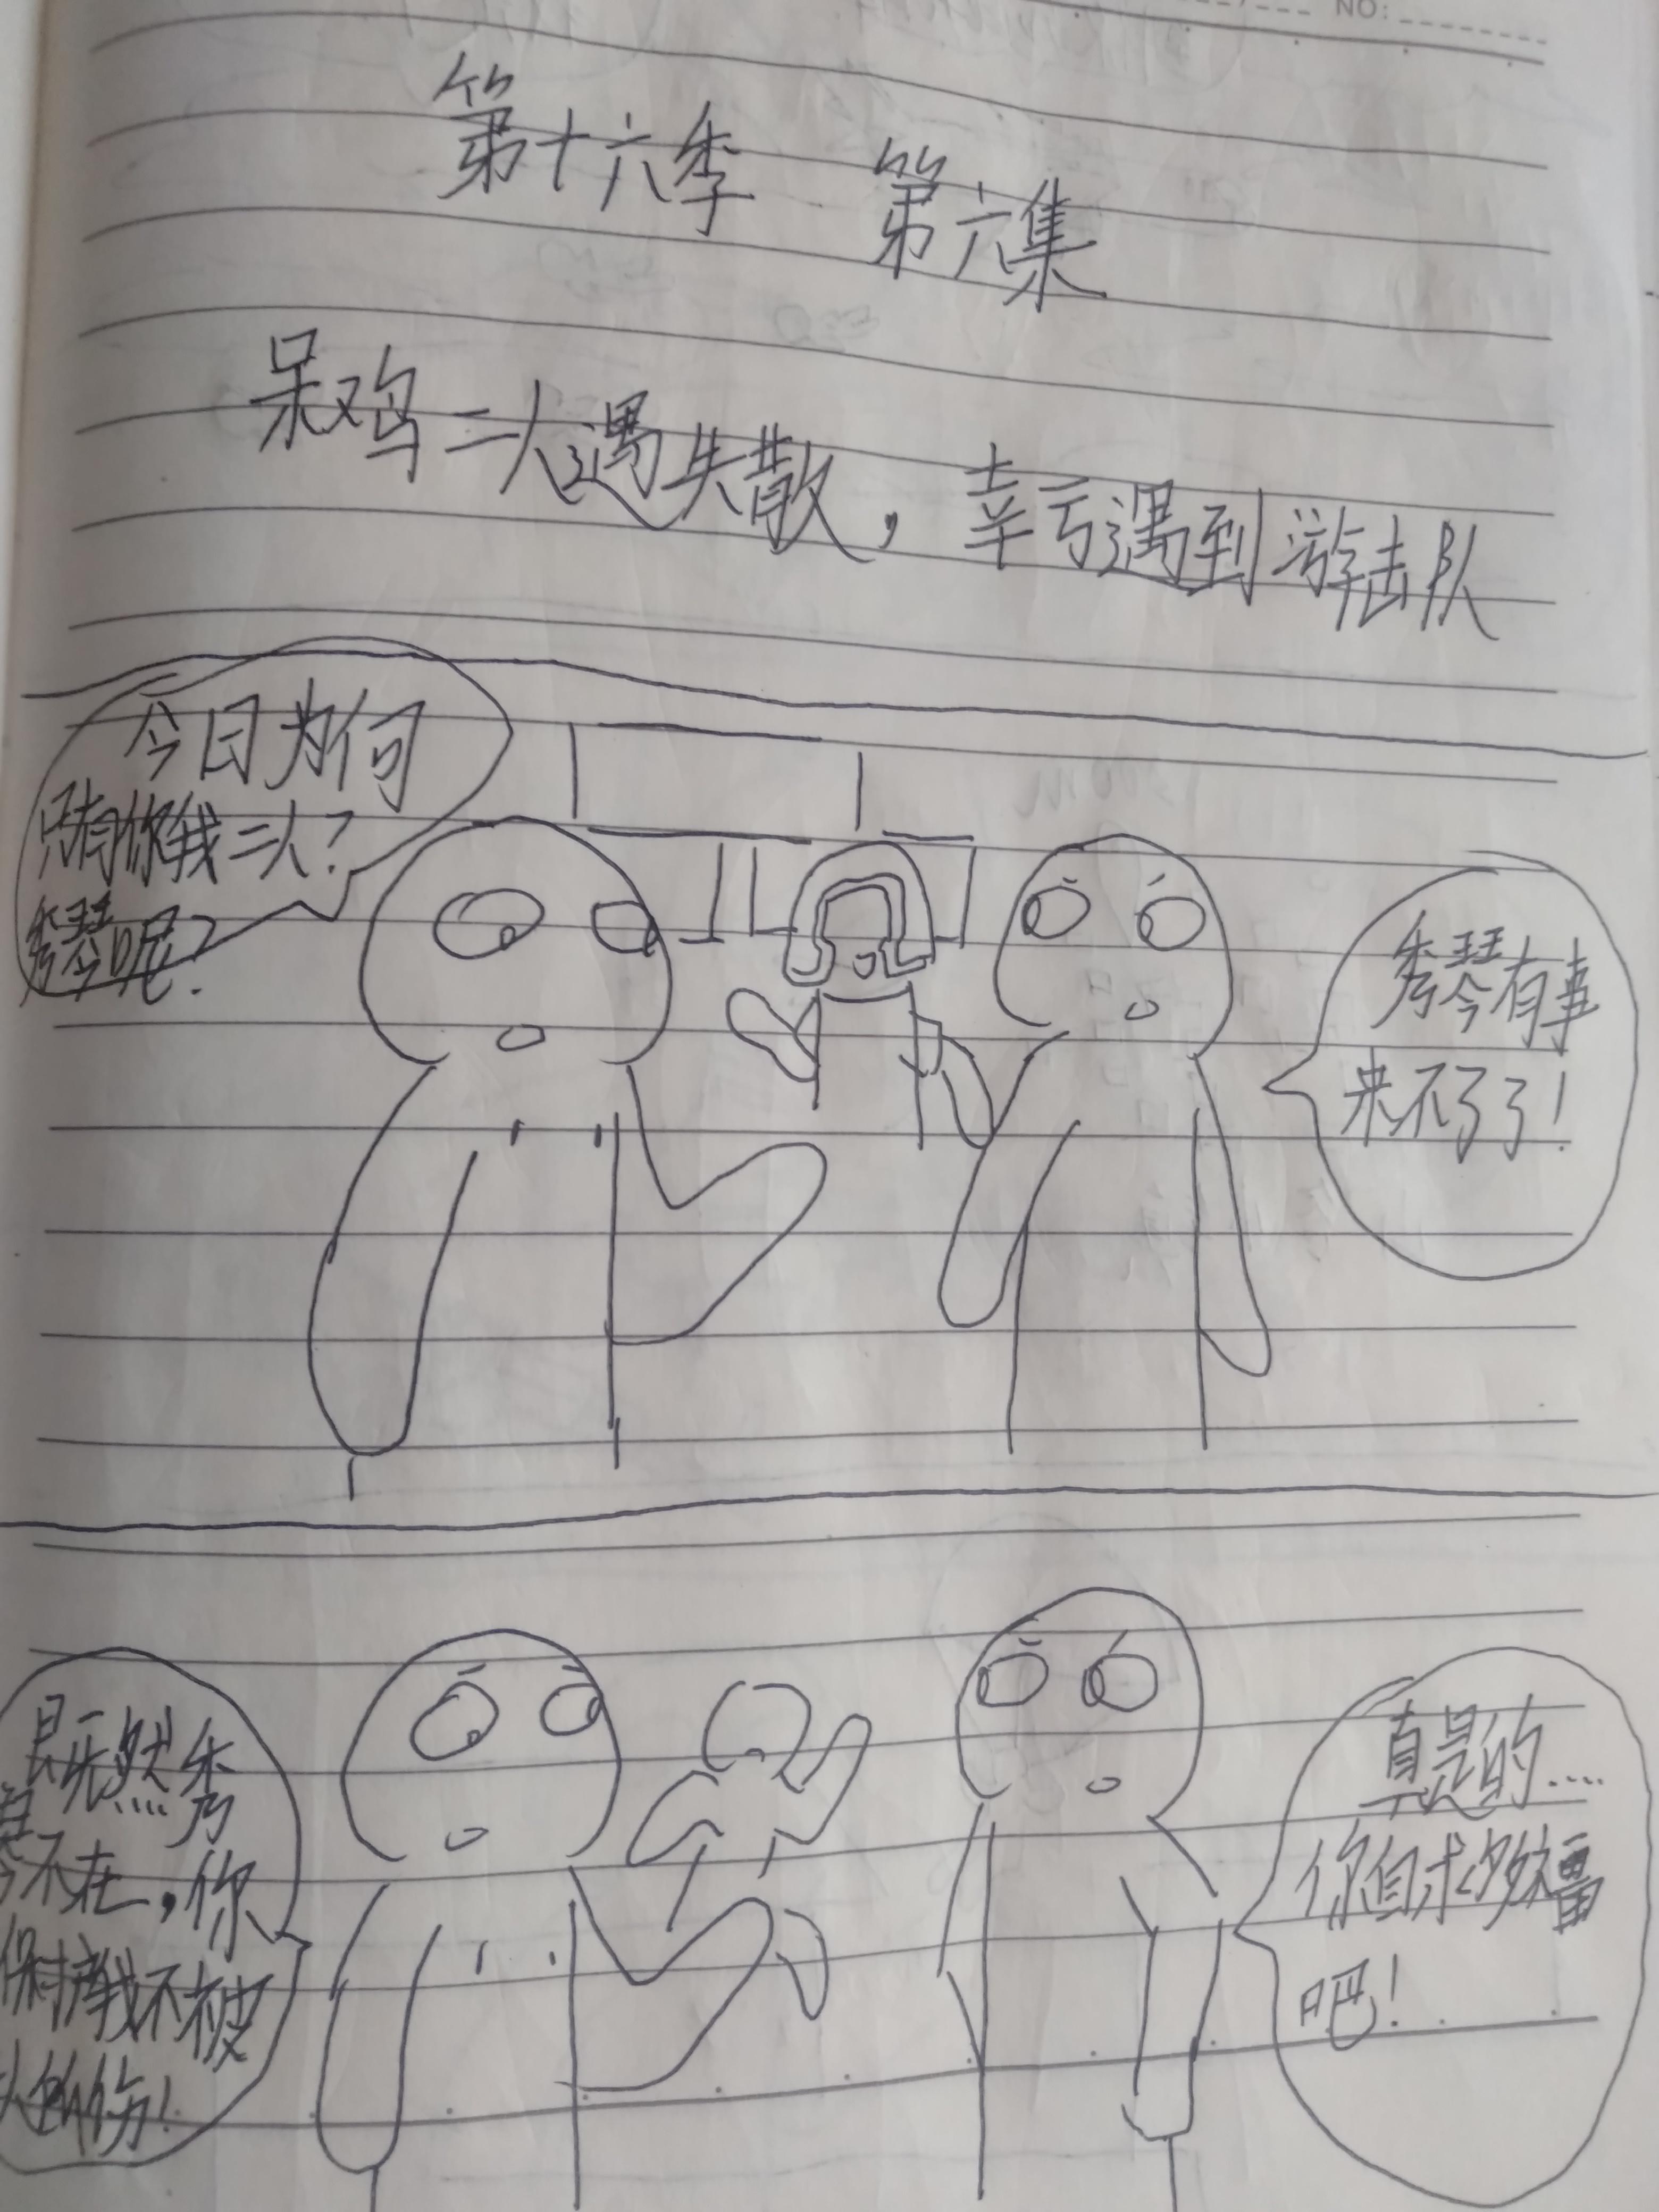 NO:
第十六季 第六集
呆鸡二人遇失散，幸亏遇到游击队
今日为何
只有你我二人？
秀琴呢？
秀琴有事
来不了了！
既然秀
琴不在，你
保护我不被
人砍伤！
真是的....
你自求多福
吧！